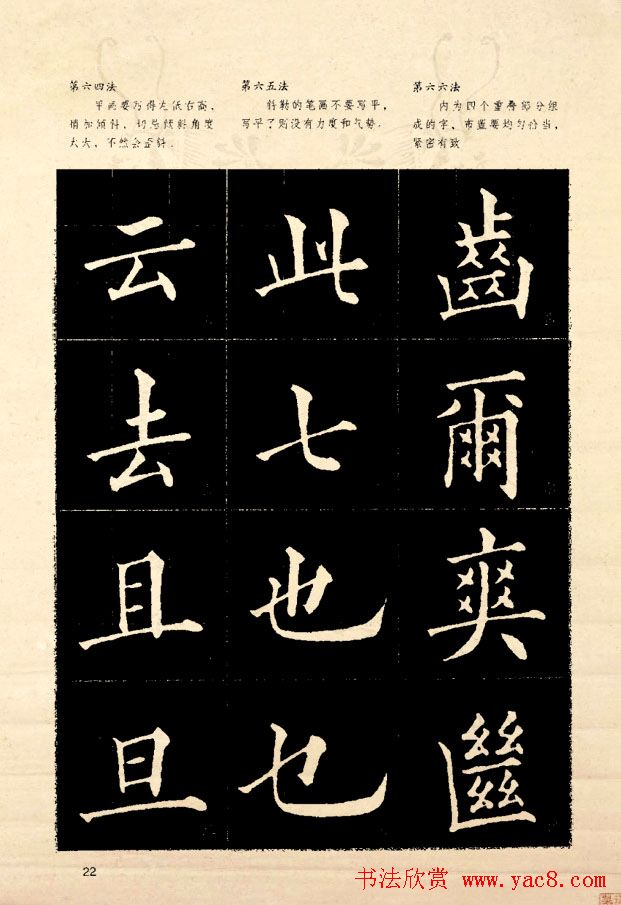 第六四法
平画要写得左低右高，
稍加倾斜，切忌倾斜角度
太大，不然会歪斜．
第六五法
斜勒的笔画不要写平，
写平了则没有力度和气势．
第六六法
内为四个重叠部分组
成的字，布置要均匀恰当，
紧密有致
云 此 齒
去 七 爾
且 也 爽
旦 㔫
22
书法欣赏 www.yac8.com